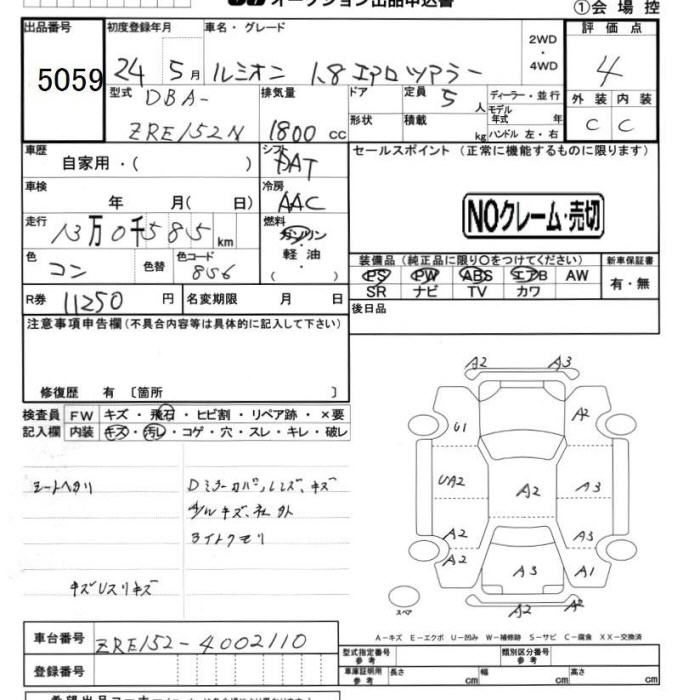 オークション出品申込書
①会場控
出品番号 初度登録年月 車名・グレード 2WD ・ 4WD 評価点
5059 24 5月 ルミオン 1.8 エアロツアラー 4
型式 DBA- ZRE152N 排気量 1800 cc ドア 定員 5 人 ディーラー・並行 外装 内装
形状 積載 kg モデル年式 年 ハンドル 左・右 C C
車歴 自家用・( ) シフト DAT セールスポイント (正常に機能するものに限ります)
車検 年 月( 日) 冷房 AAC
NOクレーム・売切
走行 13万0千585 km 燃料 ガソリン・軽油・( )
色 コン 色替 色コード 856
装備品 (純正品に限り〇をつけてください) 新車保証書
PS PW ABS エアB AW 有・無
SR ナビ TV カワ
R券 11250 円 名変期限 月 日 後日品
注意事項申告欄 (不具合内容等は具体的に記入して下さい)
修復歴 有 〔箇所 〕
検査員 FW キズ・飛石・ヒビ割・リペア跡・×要
記入欄 内装 キズ・汚レ・コゲ・穴・スレ・キレ・破レ
シートヘタリ Dミラーカバー、レンズ、キズ
A/W キズ、社外
ライトクモリ
キズUスリキズ
A2 A3
U1 A2
UA2 A2 A3
A2 A3
A2 A3 A1
A2 A2
スペア
A－キズ E－エクボ U－凹み W－補修跡 S－サビ C－腐食 XX－交換済
車台番号 ZRE152-4002110
登録番号
型式指定番号 参考 類別区分番号 参考
車庫証明用 参考 長さ cm 幅 cm 高さ cm